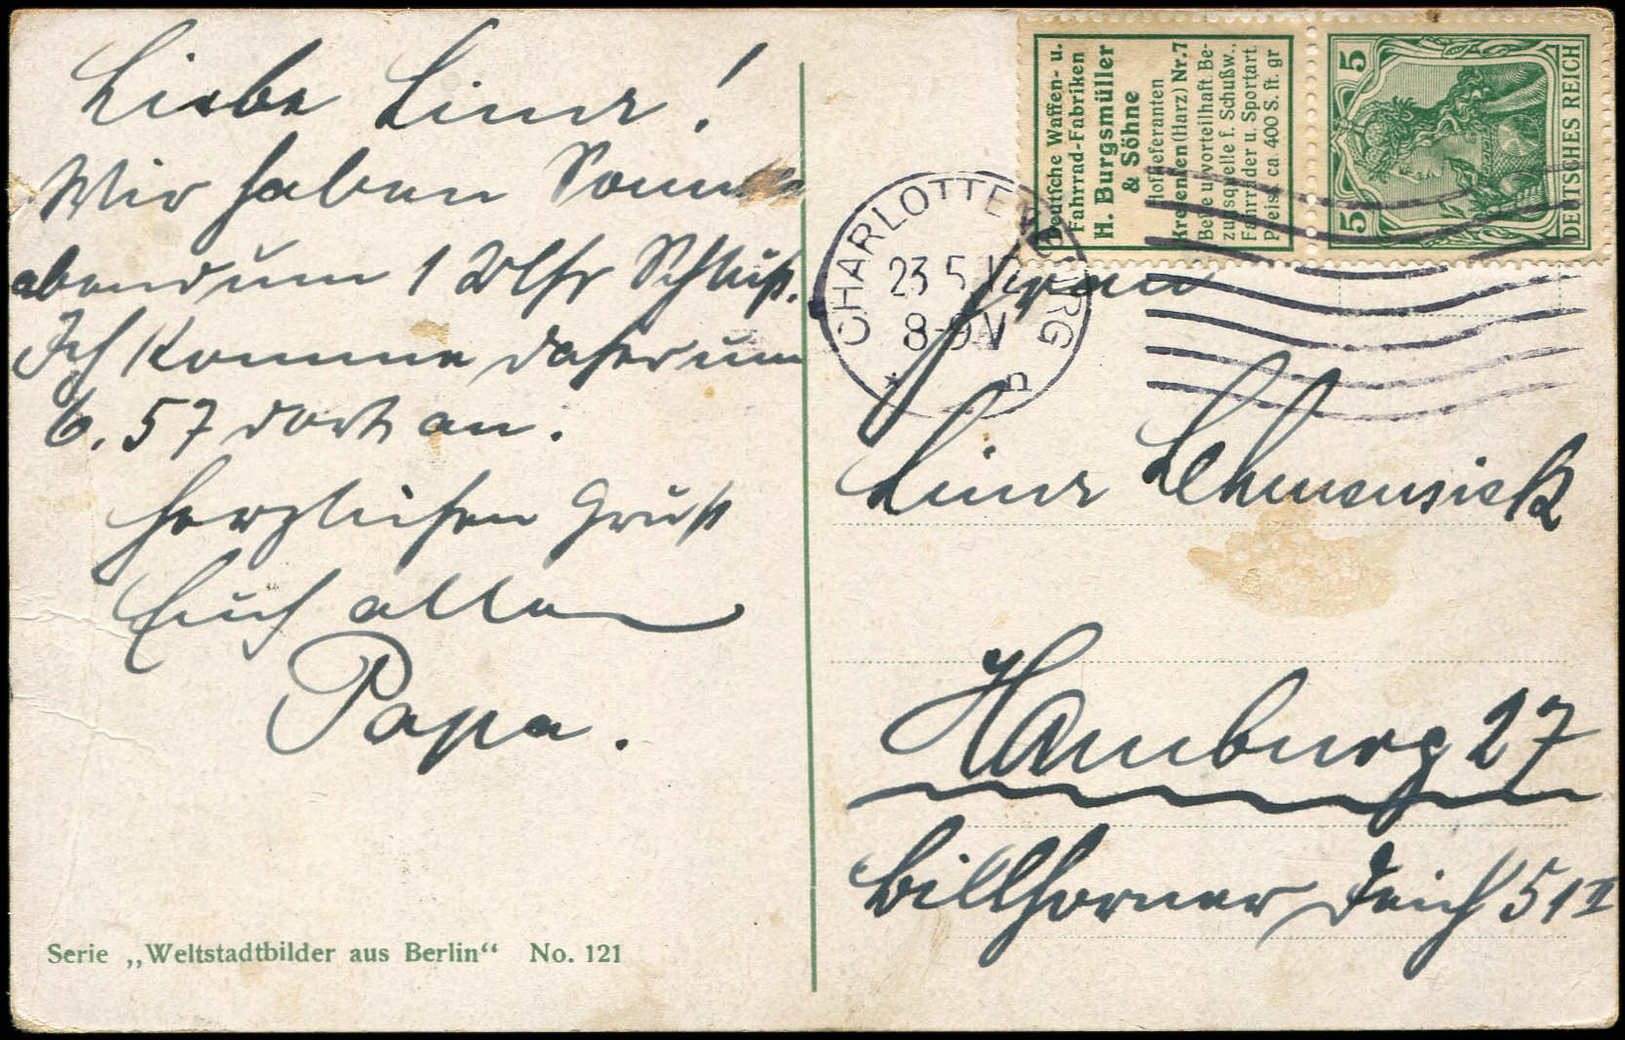 Liebe Line!
Wir haben Sonn
abend um 1 Uhr Schluß.
Ich komme daher um
6.57 dort an.
Herzlichen Gruß
Euch allen
Papa.
Serie „Weltstadtbilder aus Berlin“ No. 121
Deutsche Waffen- u.
Fahrrad-Fabriken
H. Burgsmüller
& Söhne
Hoflieferanten
Kreiensen (Harz) Nr. 7
Beste u. vorteilhaft. Be-
zugsquelle f. Schußw.,
Fahrräder u. Sportart.
Preisl. ca. 400 S. ft. gr
5 5
DEUTSCHES REICH
CHARLOTTENBURG
23.5.12
8-9V
* n
Frau
Line Lehmensiek
Hamburg 27
Billhorner Deich 51 II